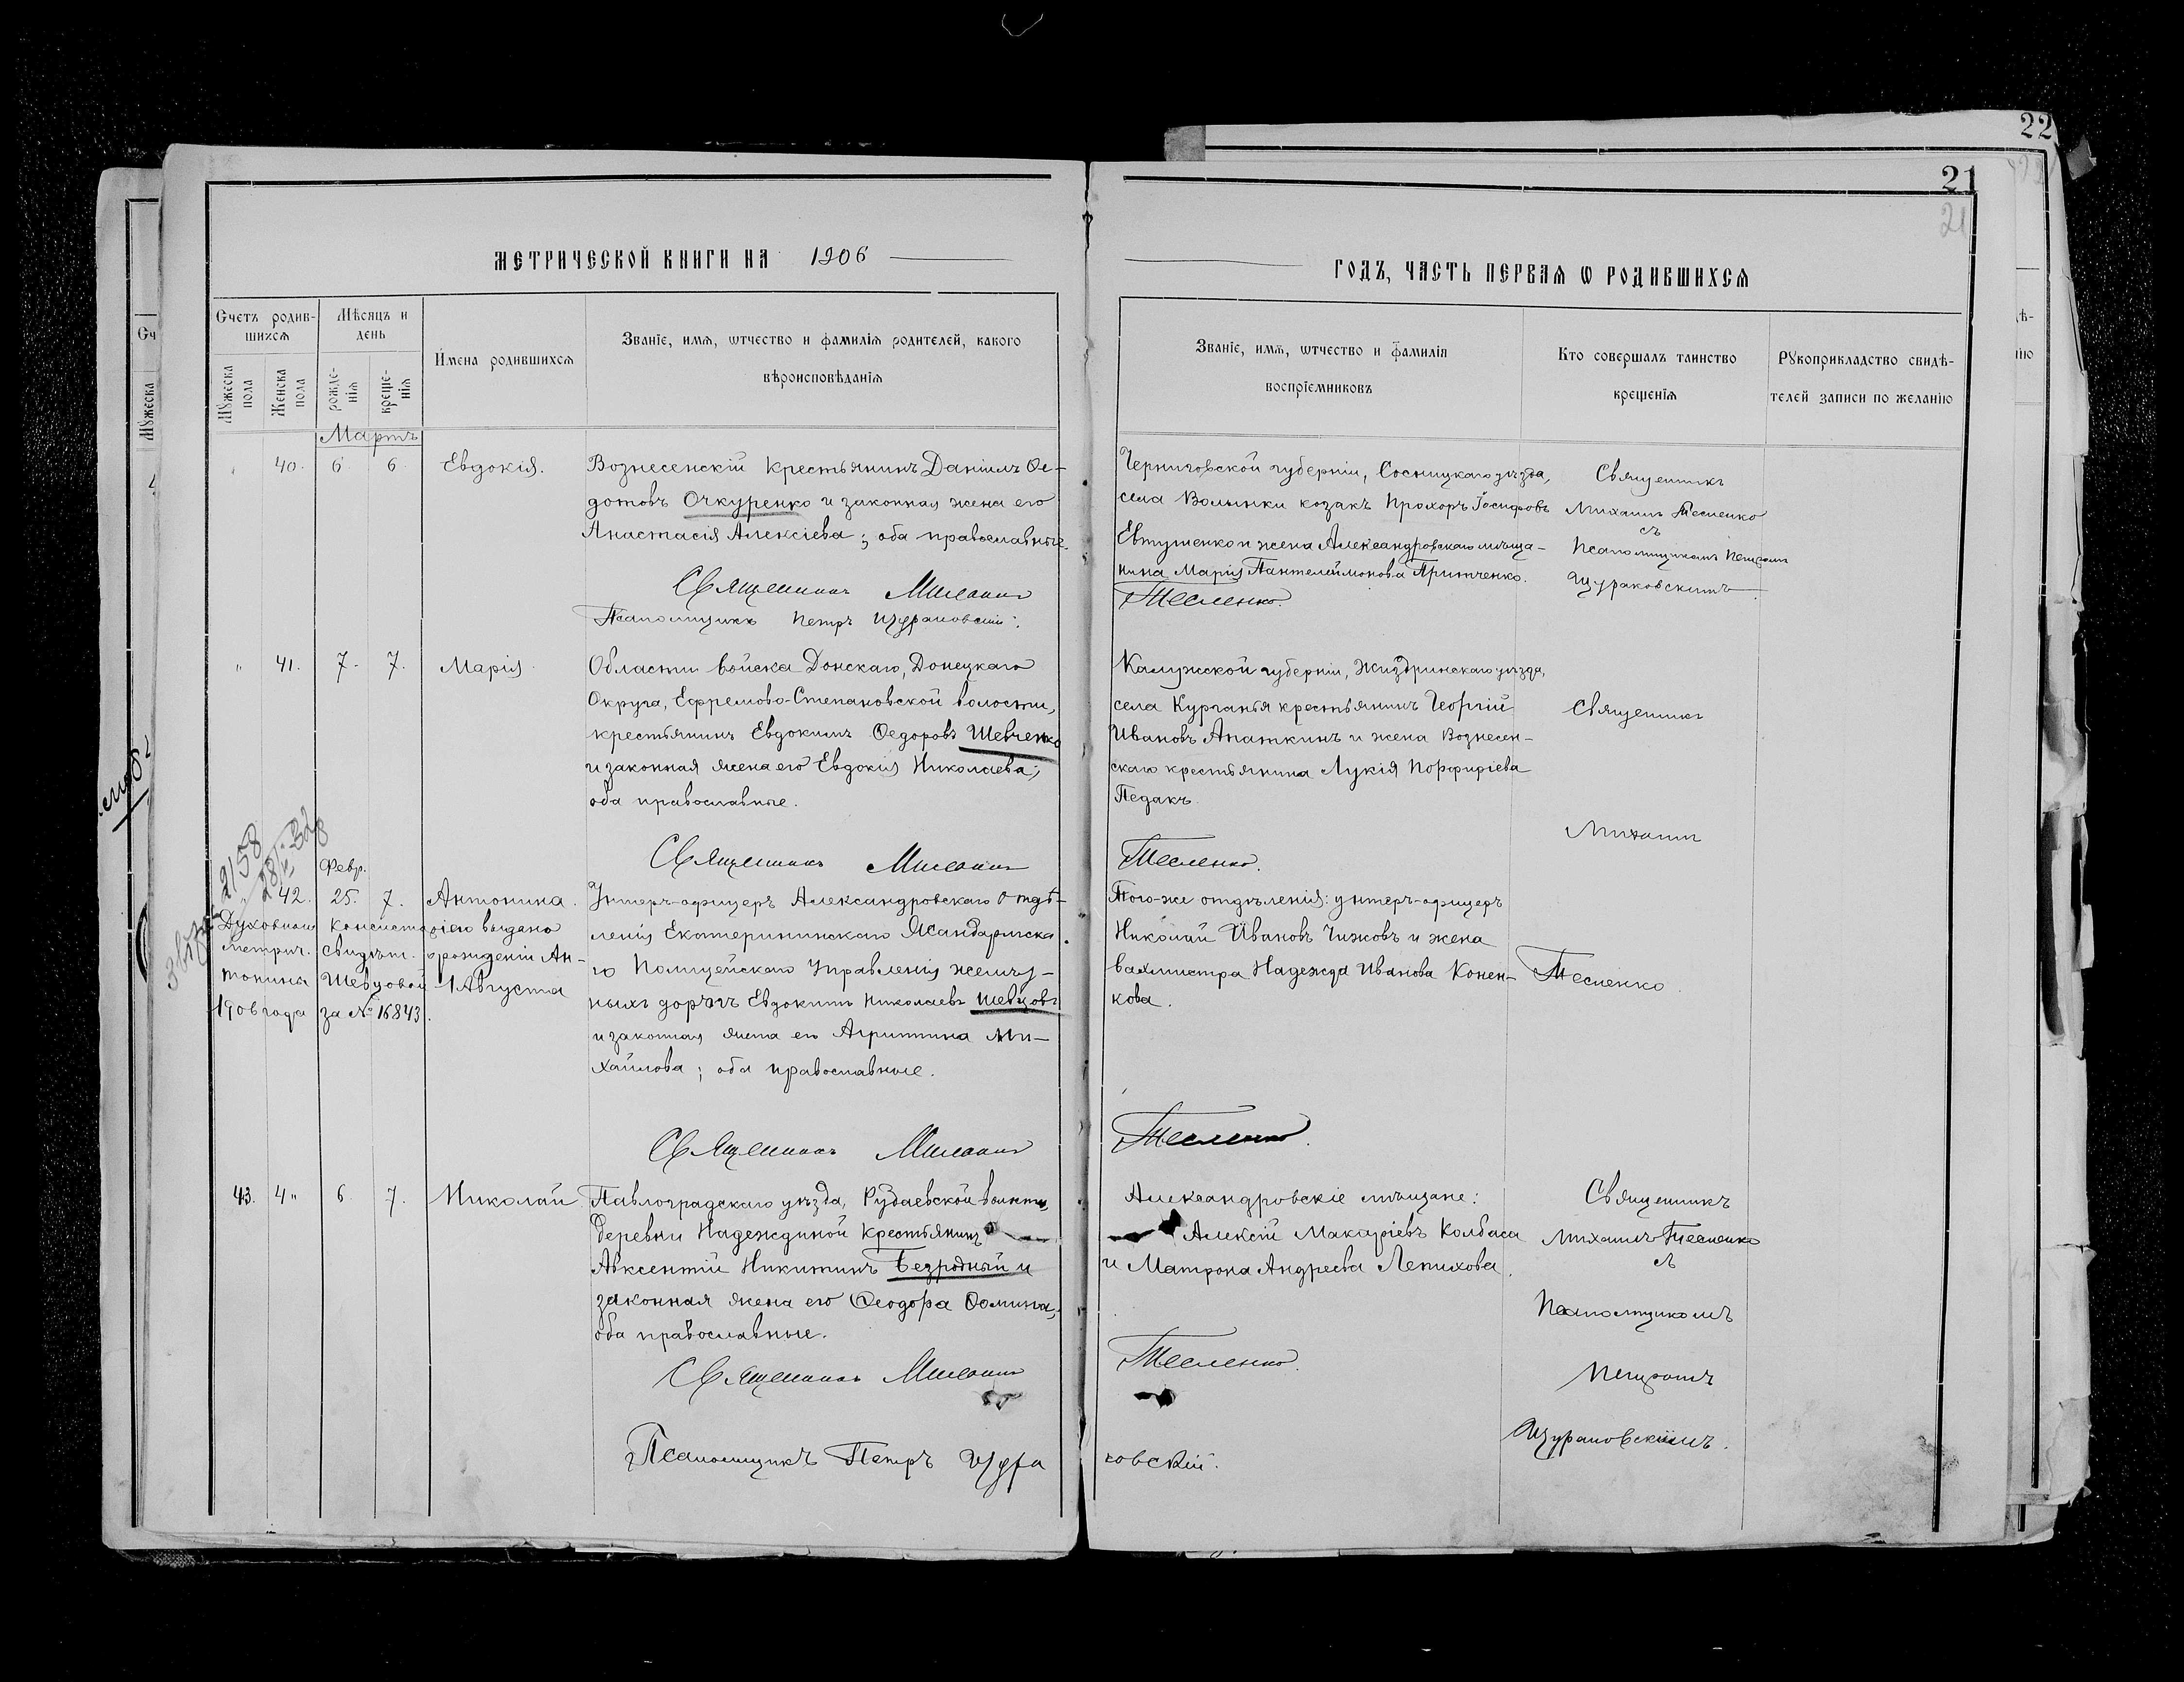 22
21
21
МЕТРИЧЕСКОЙ КНИГИ НА 1906
ГОДЪ, ЧАСТЬ ПЕРВАЯ Ѡ РОДИВШИХСЯ
Счетъ родив-
шихся
Мѣсяцъ и
день
Имена родившихся
Званіе, имя, ѡтчество и фамилія родителей, какого
вѣроисповѣданія
Мужеска
пола
Женска
пола
рожде-
нія
креще-
нія
Званіе, имя, ѡтчество и фамилія
воспріемниковъ
Кто совершалъ таинство
крещенія
Рукоприкладство свидѣ-
телей записи по желанію
Мартъ
40. 6. 6. Евдокія.
Вознесенскій крестьянинъ Даніилъ Ѳе-
дотовъ Очкуренко и законная жена его
Анастасія Алексіева; оба православные.
Священникъ Михаилъ
Псаломщикъ Петръ Щураковскій.
Черниговской губерніи, Сосницкаго уѣзда,
села Волынки козакъ Прохоръ Іосифовъ
Евтушенко и жена Александровскаго мѣща-
нина Марія Пантелеймонова Притченко.
Тесленко.
Священникъ
Михаилъ Тесленко
съ
Псаломщикомъ Петромъ
Щураковскимъ.
" 41. 7. 7. Марія.
Области войска Донскаго, Донецкаго
Округа, Ефремово-Степановской волости,
крестьянинъ Евдокимъ Ѳедоровъ Шевченко
и законная жена его Евдокія Николаева;
оба православные.
Священникъ Михаилъ
Калужской губерніи, Жиздринскаго уѣзда,
села Курганья крестьянинъ Георгій
Ивановъ Апаткинъ и жена Вознесен-
скаго крестьянина Лукія Порфиріева
Педакъ.
Тесленко.
Священникъ
Михаилъ
Тесленко.
2158
Февр.
" 42. 25. 7. Антонина.
Духовною Консисторіею выдано
метрич. свидѣт. о рожденіи Ан-
тонины Шевцовой 1 Августа
1906 года за № 16843.
Унтеръ-офицеръ Александровскаго отдѣ-
ленія Екатерининскаго Жандармска-
го Полицейскаго Управленія желѣз-
ныхъ дорогъ Евдокимъ Николаевъ Шевцовъ
и законная жена его Агриппина Ми-
хайлова; оба православные.
Священникъ Михаилъ
Того-же отдѣленія: унтеръ-офицеръ
Николай Ивановъ Чижовъ и жена
вахмистра Надежда Иванова Конен-
кова.
Тесленко.
43. 4" 6. 7. Николай.
Павлоградскаго уѣзда, волости,
деревни Надеждиной крестьянинъ
Авксентій Никитинъ Безродный и
законная жена его Ѳеодора Ѳомина,
оба православные.
Священникъ Михаилъ
Псаломщикъ Петръ Щура
Александровскіе мѣщане:
Алексій Макаріевъ Колбаса
и Матрона Андреева Лепихова.
Тесленко.
ковскій.
Священникъ
Михаилъ Тесленко
съ
Псаломщикомъ
Петромъ
Щураковскимъ.